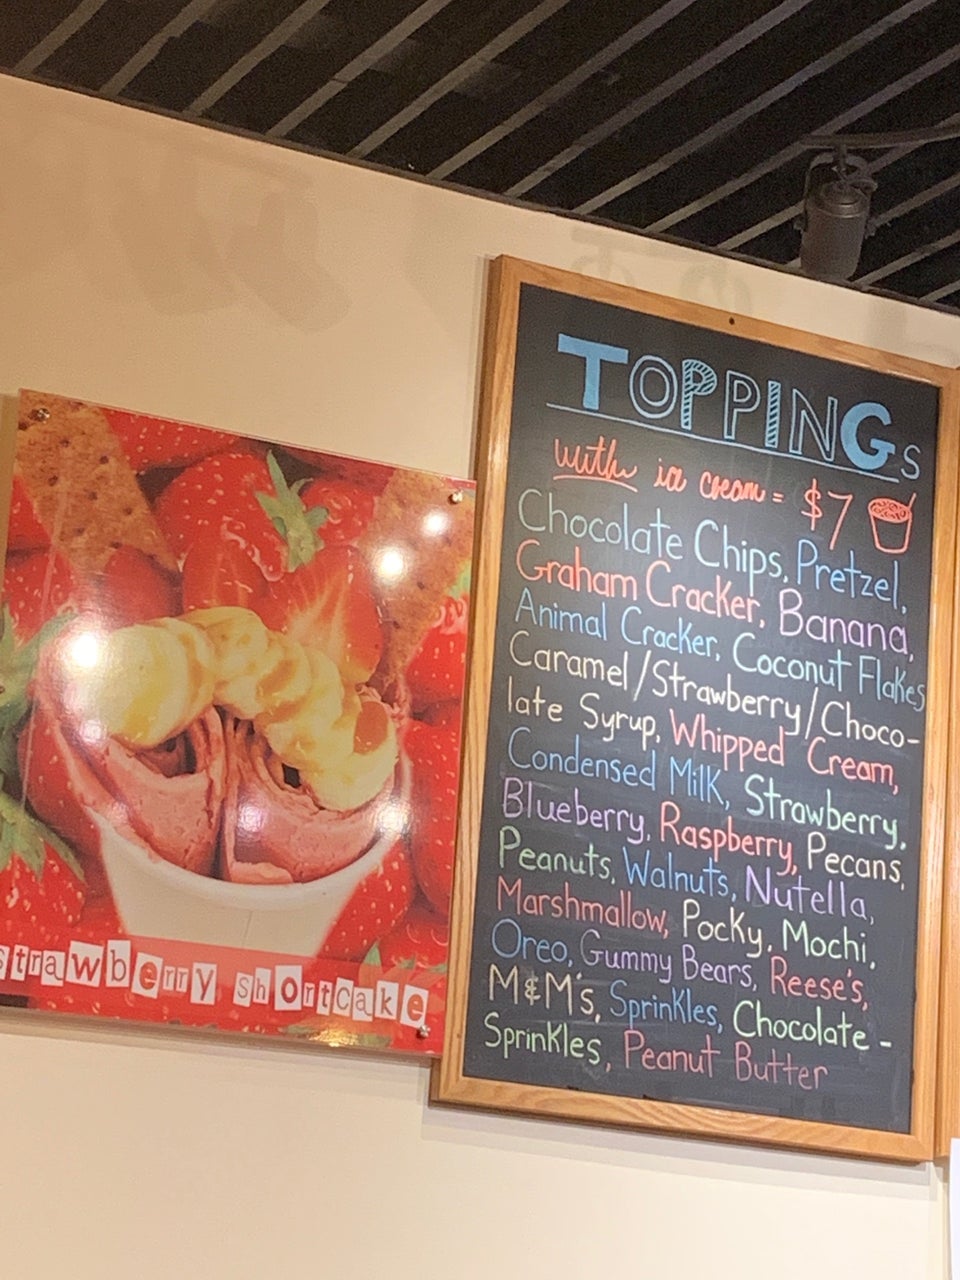 TOPPINGS
with ice cream = $7
Chocolate Chips, Pretzel,
Graham Cracker, Banana,
Animal Cracker, Coconut Flakes
Caramel/Strawberry/Choco-
late Syrup, Whipped Cream,
Condensed Milk, Strawberry,
Blueberry, Raspberry, Pecans,
Peanuts, Walnuts, Nutella,
Marshmallow, Pocky, Mochi,
Oreo, Gummy Bears, Reese's,
M&M's, Sprinkles, Chocolate -
Sprinkles, Peanut Butter
strawberry shortcake